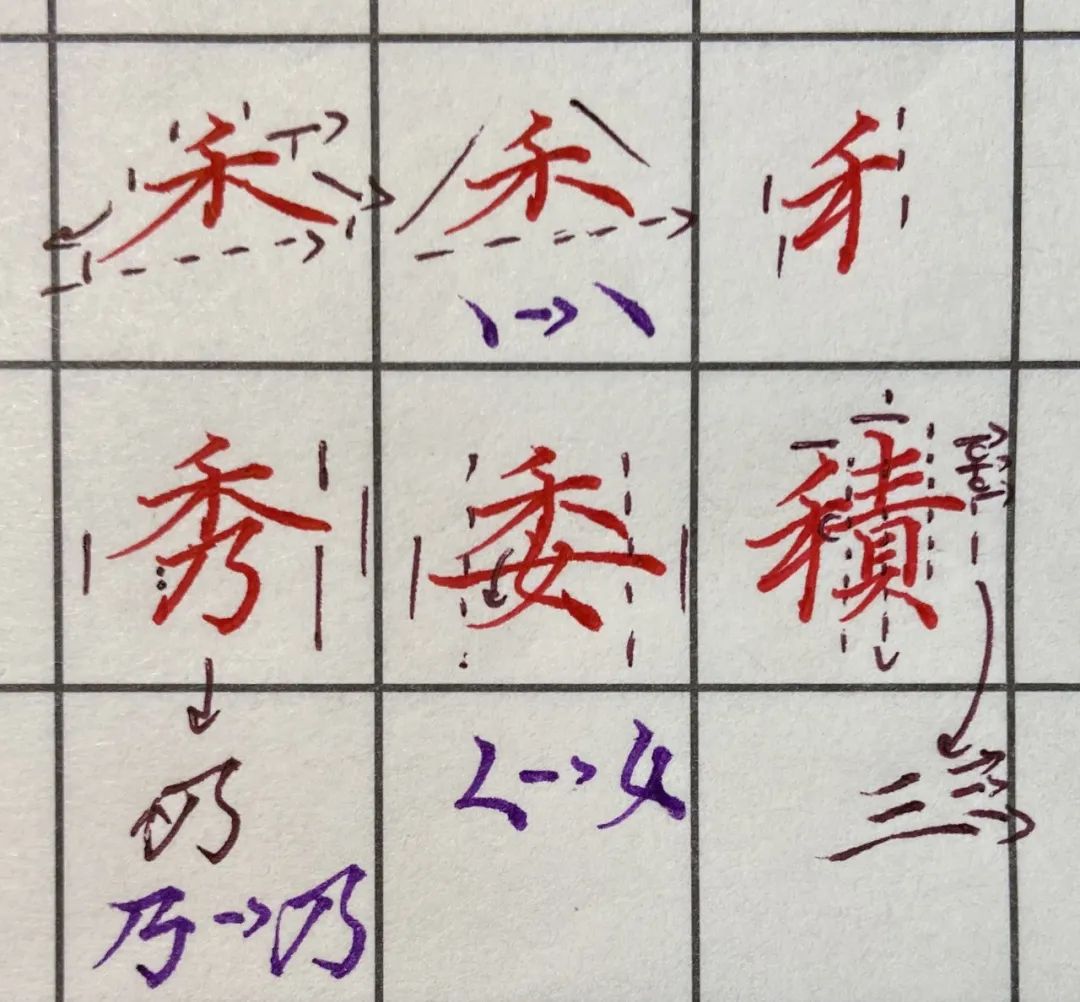 禾 禾 禾
秀 委 積
乃 女 三
乃